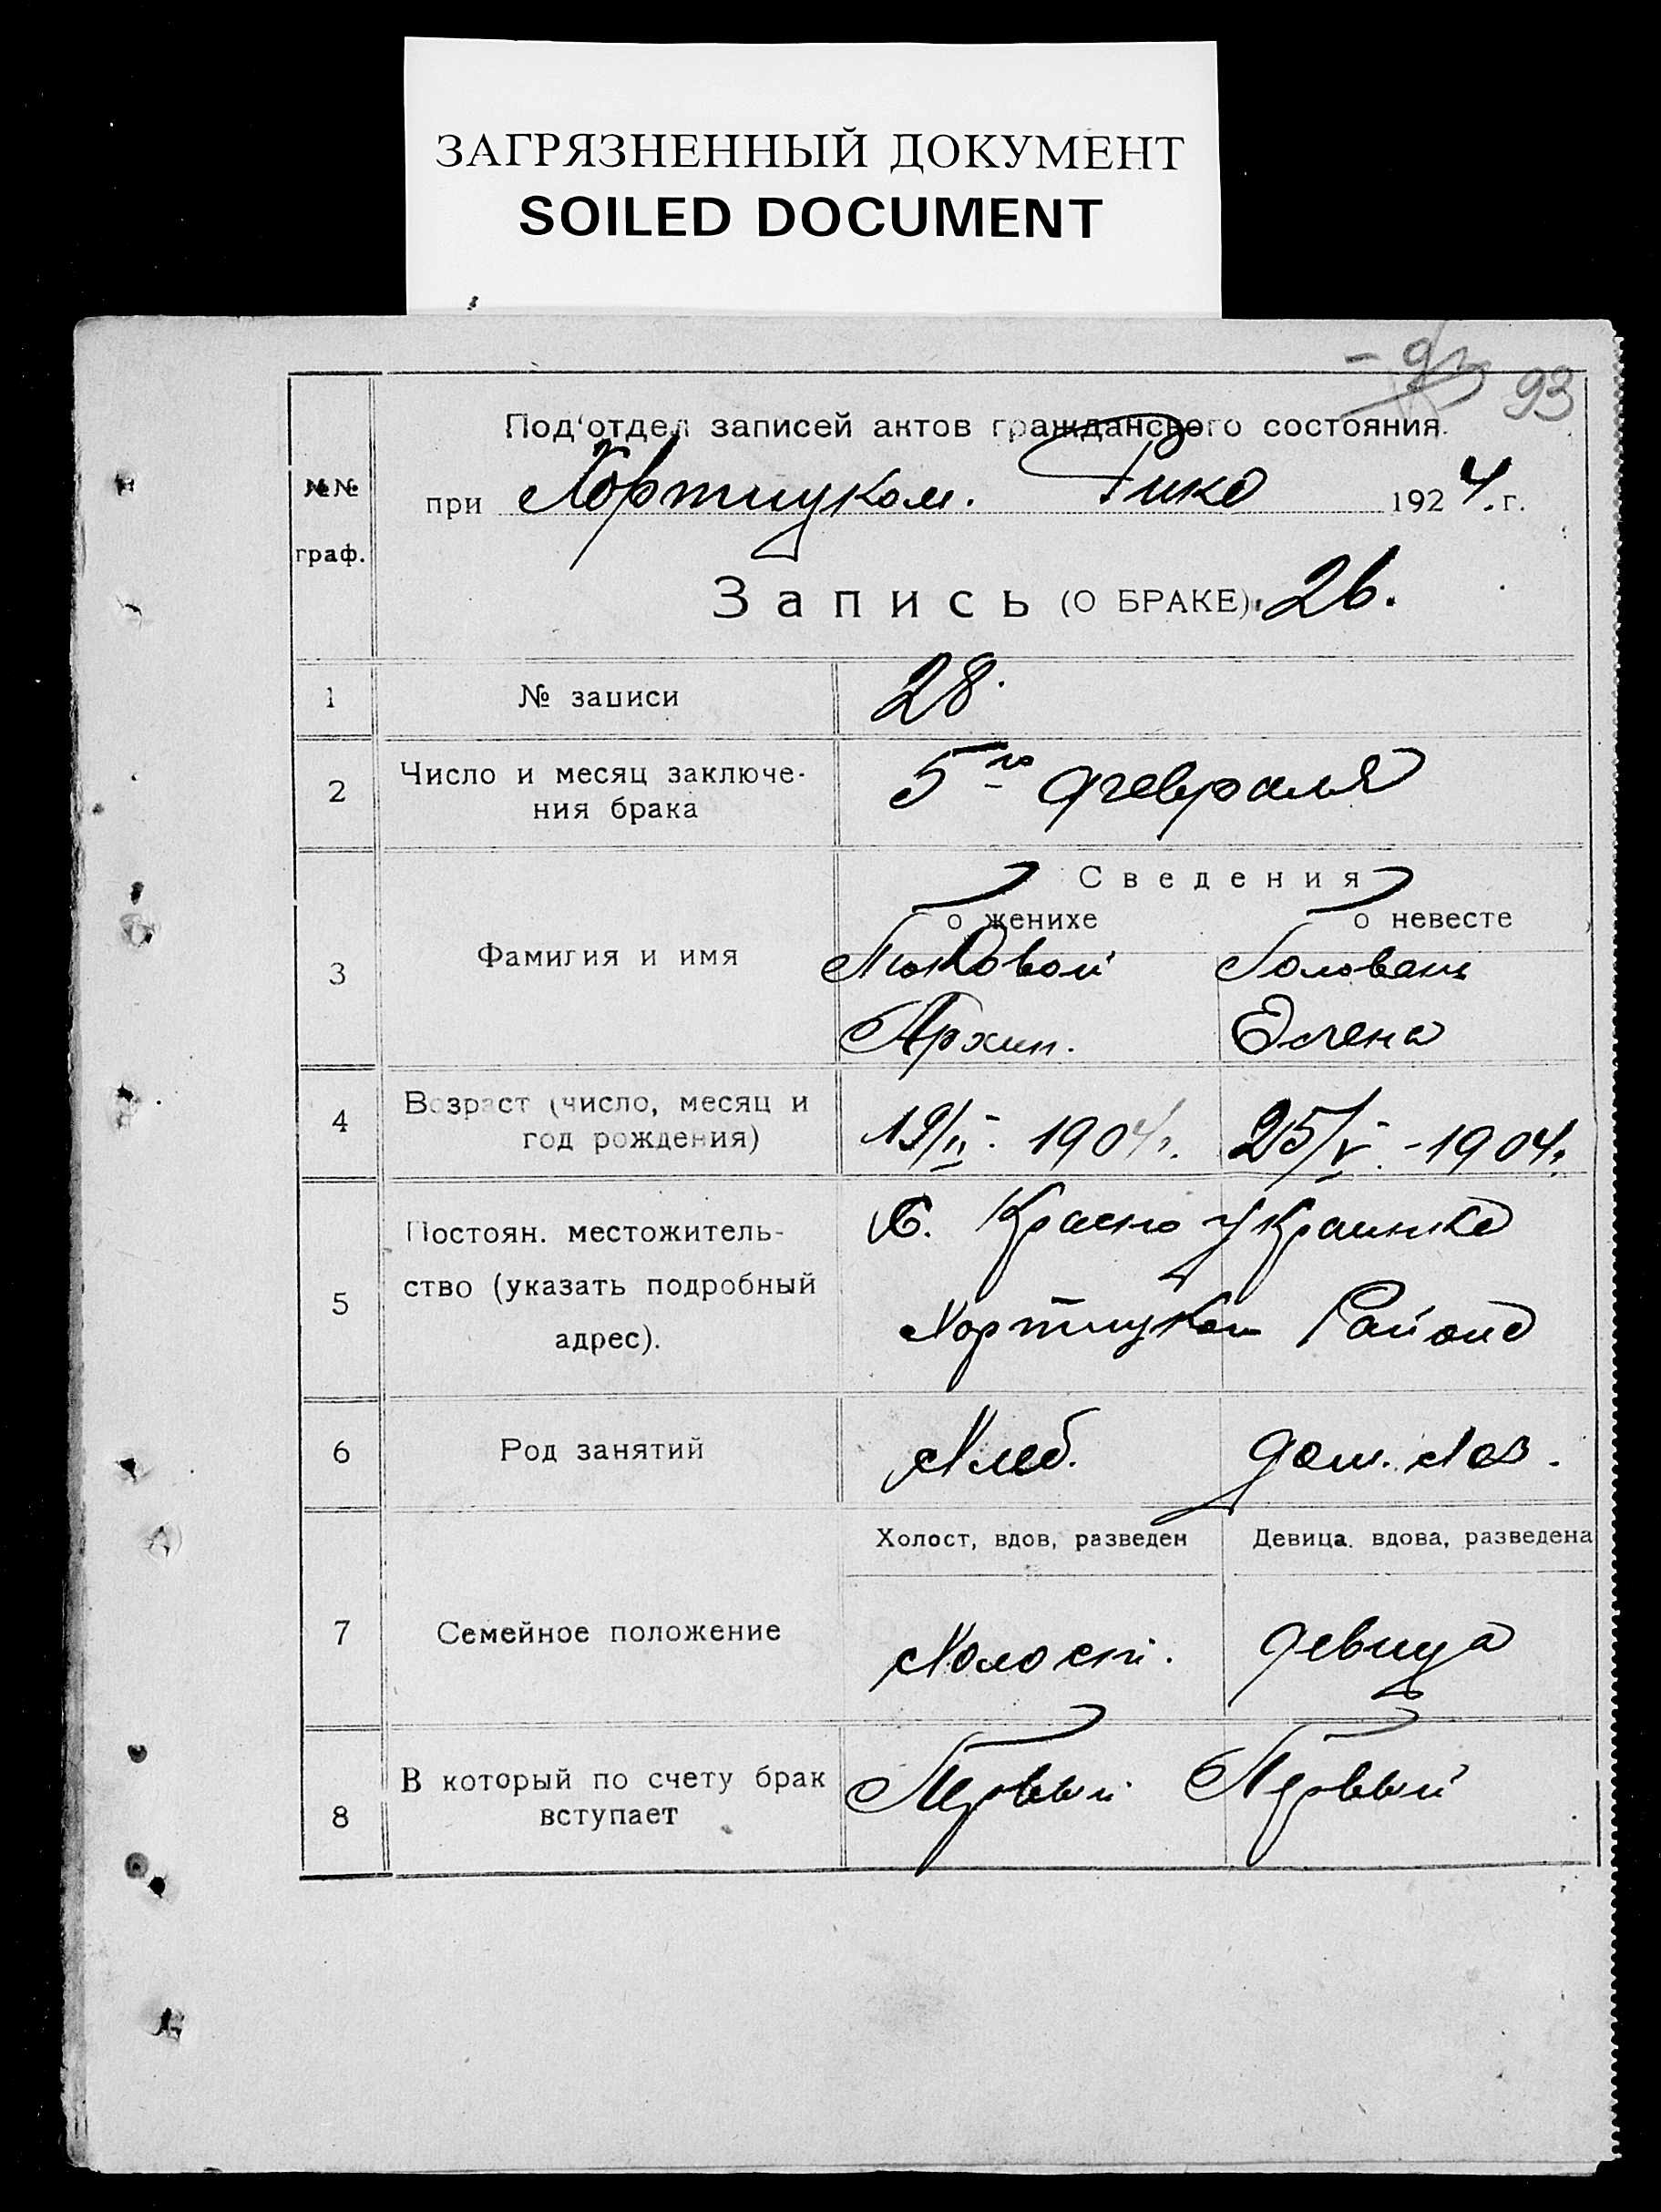 ЗАГРЯЗНЕННЫЙ ДОКУМЕНТ
SOILED DOCUMENT
93
№№ граф.
Под'отдел записей актов гражданского состояния.
при Хортицком. Рике 1924. г.
Запись (О БРАКЕ) 26.
1 № записи 28.
2 Число и месяц заключе-
ния брака 5го февраля
Сведения
о женихе о невесте
3 Фамигия и имя Головань
Архип. Елена
4 Возраст (число, месяц и
год рождения) 19/II. 1904г. 25/V. - 1904.
5 Постоян. местожитель-
ство (указать подробный
адрес).
С. Красно Украинка
Хортицкого Района
6 Род занятий Хлеб. дом. хоз.
Холост, вдов, разведен Девица. вдова, разведена
7 Семейное положение Холост. девица
8 В который по счету брак
вступает Первый Первый